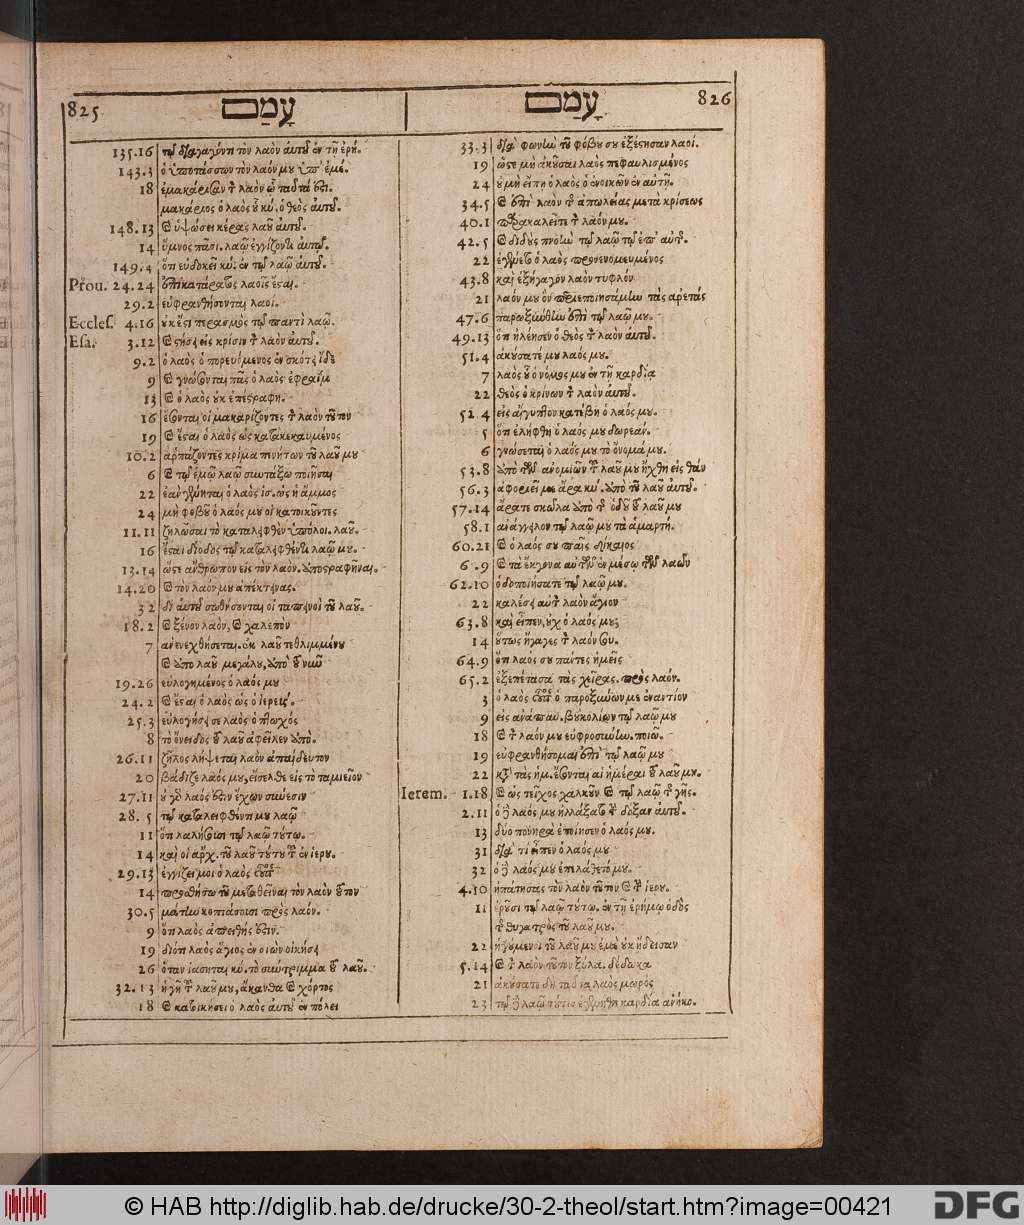 825
עָמַם
135.16 τῷ διαγαγόντι τὸν λαὸν αὐτοῦ ἐν τῇ ἐρή.
143.3 ὁ ὑποτάσσων τὸν λαόν μου ὑπ' ἐμέ.
18 ἐμακάρισαν τ λαὸν ᾧ ταῦτά ἐστι.
μακάριος ὁ λαὸς οὗ κύ. ὁ θεὸς αὐτοῦ.
148.13 καὶ ὑψώσει κέρας λαοῦ αὐτοῦ.
14 ὕμνος πᾶσι. λαῷ ἐγγίζοντι αὐτῷ.
149.4 ὅτι εὐδοκεῖ κύ. ἐν τῷ λαῷ αὐτοῦ.
Prou. 24.24 ἐπικατάρατος λαοῖς ἔσαι.
29.2 εὐφρανθήσονται λαοί.
Eccles. 4.16 οὐκ ἔστι περασμὸς τῷ παντὶ λαῷ.
Esa. 3.12 καὶ στήσει εἰς κρίσιν τ λαὸν αὐτοῦ.
9.2 ὁ λαὸς ὁ πορευόμενος ἐν σκότει ἴδε
9 καὶ γνώσονται πᾶς ὁ λαὸς ἐφραΐμ
13 καὶ ὁ λαὸς οὐκ ἐπεστράφη.
16 ἔσονται οἱ μακαρίζοντες τ λαὸν τοῦτον
19 καὶ ἔσται ὁ λαὸς ὡς κατακεκαυμένος
10.2 ἁρπάζοντες κρίμα πενήτων τοῦ λαοῦ μου
6 καὶ τῷ ἐμῷ λαῷ συντάξω ποιῆσαι
22 ἐὰν γένηται ὁ λαὸς ἰσ. ὡς ἡ ἄμμος
24 μὴ φοβοῦ ὁ λαός μου οἱ κατοικοῦντες
11.11 ζηλῶσαι τὸ καταλειφθὲν ὑπόλοι. λαοῦ.
16 ἔσται δίοδος τῷ καταλειφθέντι λαῷ μου.
13.14 ὥστε ἄνθρωπον εἰς τὸν λαὸν. ὑποστραφῆναι.
14.20 καὶ τὸν λαόν μου ἀπέκτηνας.
32 δι' αὐτοῦ σωθήσονται οἱ ταπεινοὶ τοῦ λαοῦ.
18.2 καὶ ξένον λαὸν, καὶ χαλεπὸν
7 ἀνενεχθήσεται. ἐκ λαοῦ τεθλιμμένου
καὶ ὑπὸ λαοῦ μεγάλου, ὑπὸ τοῦ νῦν
19.26 εὐλογημένος ὁ λαός μου
24.2 καὶ ἔσται ὁ λαὸς ὡς ὁ ἱερεύς.
25.3 εὐλογήσει σε λαὸς ὁ πτωχός
8 τὸ ὄνειδος τοῦ λαοῦ ἀφεῖλεν ἀπὸ.
26.11 ζῆλος λήψεται λαὸν ἀπαίδευτον
20 βάδιζε λαός μου, εἴσελθε εἰς τὸ ταμιεῖον
27.11 οὐ γὰρ λαός ἐστιν ἔχων σύνεσιν
28.5 τῷ καταλειφθέντι μου λαῷ
11 ὅτι λαλήσουσι τῷ λαῷ τούτῳ.
14 καὶ οἱ ἄρχ. τοῦ λαοῦ τούτου τοῦ ἐν ἱερου.
29.13 ἐγγίζει μοι ὁ λαὸς οὗτος
14 προσθήσω τοῦ μεταθεῖναι τὸν λαὸν τοῦτον
30.5 μάτην κοπιάσουσι πρὸς λαόν.
9 ὅτι λαὸς ἀπειθής ἐστιν.
19 διότι λαὸς ἅγιος ἐν σιὼν οἰκήσει
26 ὅταν ἰάσηται κύ. τὸ σύντριμμα τοῦ λαοῦ.
32.13 ἡ γῆ τοῦ λαοῦ μου, ἄκανθα καὶ χόρτος
18 καὶ κατοικήσει ὁ λαὸς αὐτοῦ ἐν πόλει
עָמַם
826
33.3 διὰ φωνὴν τοῦ φόβου σου ἐξέστησαν λαοί.
19 ὥστε μὴ ἀκοῦσαι λαὸς πεφαυλισμένος
24 οὐ μὴ εἴπῃ ὁ λαὸς ὁ ἐνοικῶν ἐν αὐτῇ.
34.5 καὶ ἐπὶ λαὸν τ ἀπωλείας μετὰ κρίσεως
40.1 παρακαλεῖτε τ λαόν μου.
42.5 καὶ διδοὺς πνοὴν τῷ λαῷ τῷ ἐπ' αὐτ.
22 ἐγένετο ὁ λαὸς προνενομευμένος
43.8 καὶ ἐξήγαγον λαὸν τυφλόν
21 λαόν μου ὃν περιεποιησάμην τὰς ἀρετάς
47.6 παρωξύνθην ἐπὶ τῷ λαῷ μου.
49.13 ὅτι ἠλέησεν ὁ θεὸς τ λαὸν αὐτοῦ.
51.4 ἀκούσατέ μου λαός μου.
7 λαὸς οὗ ὁ νόμος μου ἐν τῇ καρδίᾳ
22 θεὸς ὁ κρίνων τ λαὸν αὐτοῦ.
52.4 εἰς αἴγυπτον κατέβη ὁ λαός μου.
5 ὅτι ἐλήφθη ὁ λαός μου δωρεάν.
6 γνώσεται ὁ λαός μου τὸ ὄνομά μου.
53.8 ἀπὸ τῶν ἀνομιῶν τοῦ λαοῦ μου ἤχθη εἰς θάν
56.3 ἀφοριεῖ με ἄρα κύ. ἀπὸ τοῦ λαοῦ αὐτοῦ.
57.14 ἄρατε σκῶλα ἀπὸ τ ὁδοῦ τοῦ λαοῦ μου
58.1 ἀνάγγειλον τῷ λαῷ μου τὰ ἁμαρτή.
60.21 καὶ ὁ λαός σου πᾶς δίκαιος
6 .9 καὶ τὰ ἔκγονα αὐτῶν ἐν μέσῳ τῶν λαῶν
62.10 ὁδοποιήσατε τῷ λαῷ μου.
22 καλέσει αὐτ λαὸν ἅγιον
63.8 καὶ εἶπεν, οὐχ ὁ λαός μου;
14 οὕτως ἤγαγες τ λαόν σου.
64.9 ὅτι λαός σου πάντες ἡμεῖς
65.2 ἐξεπέτασα τὰς χεῖρας. πρὸς λαόν.
3 ὁ λαὸς οὗτος ὁ παροξύνων με ἐναντίον
9 εἰς ἀνάπαυ. βουκολίων τῷ λαῷ μου
18 καὶ τ λαόν μου εὐφροσύνην. ποιῶ.
19 εὐφρανθήσομαι ἐπὶ τῷ λαῷ μου
22 κατὰ τὰς ἡμ. ἔσονται αἱ ἡμέραι τοῦ λαοῦ μου.
Ierem. 1.18 καὶ ὡς τεῖχος χαλκοῦν καὶ τῷ λαῷ τ γῆς.
2.11 ὁ δὲ λαός μου ἠλλάξατο τ δόξαν αὐτοῦ.
13 δύο πονηρὰ ἐποίησεν ὁ λαός μου.
31 διὰ τί εἶπεν ὁ λαός μου
32 ὁ δὲ λαός μου ἐπελάθετό μου.
4.10 ἠπάτησας τὸν λαὸν τοῦτον καὶ τ ἱερου.
11 ἐροῦσι τῷ λαῷ τούτῳ. ἐν τῇ ἐρήμῳ ὁδὸς
τ θυγατρὸς τοῦ λαοῦ μου.
22 ἡγούμενοι τοῦ λαοῦ μου ἐμὲ οὐκ ᾔδεισαν
5.14 καὶ τ λαὸν τοῦτον ξύλα. δέδωκα
21 ἀκούσατε δὴ ταῦτα λαὸς μωρὸς
23 τῷ δὲ λαῷ τούτῳ ἐγενήθη καρδία ἀνήκο.
© HAB http://diglib.hab.de/drucke/30-2-theol/start.htm?image=00421
DFG